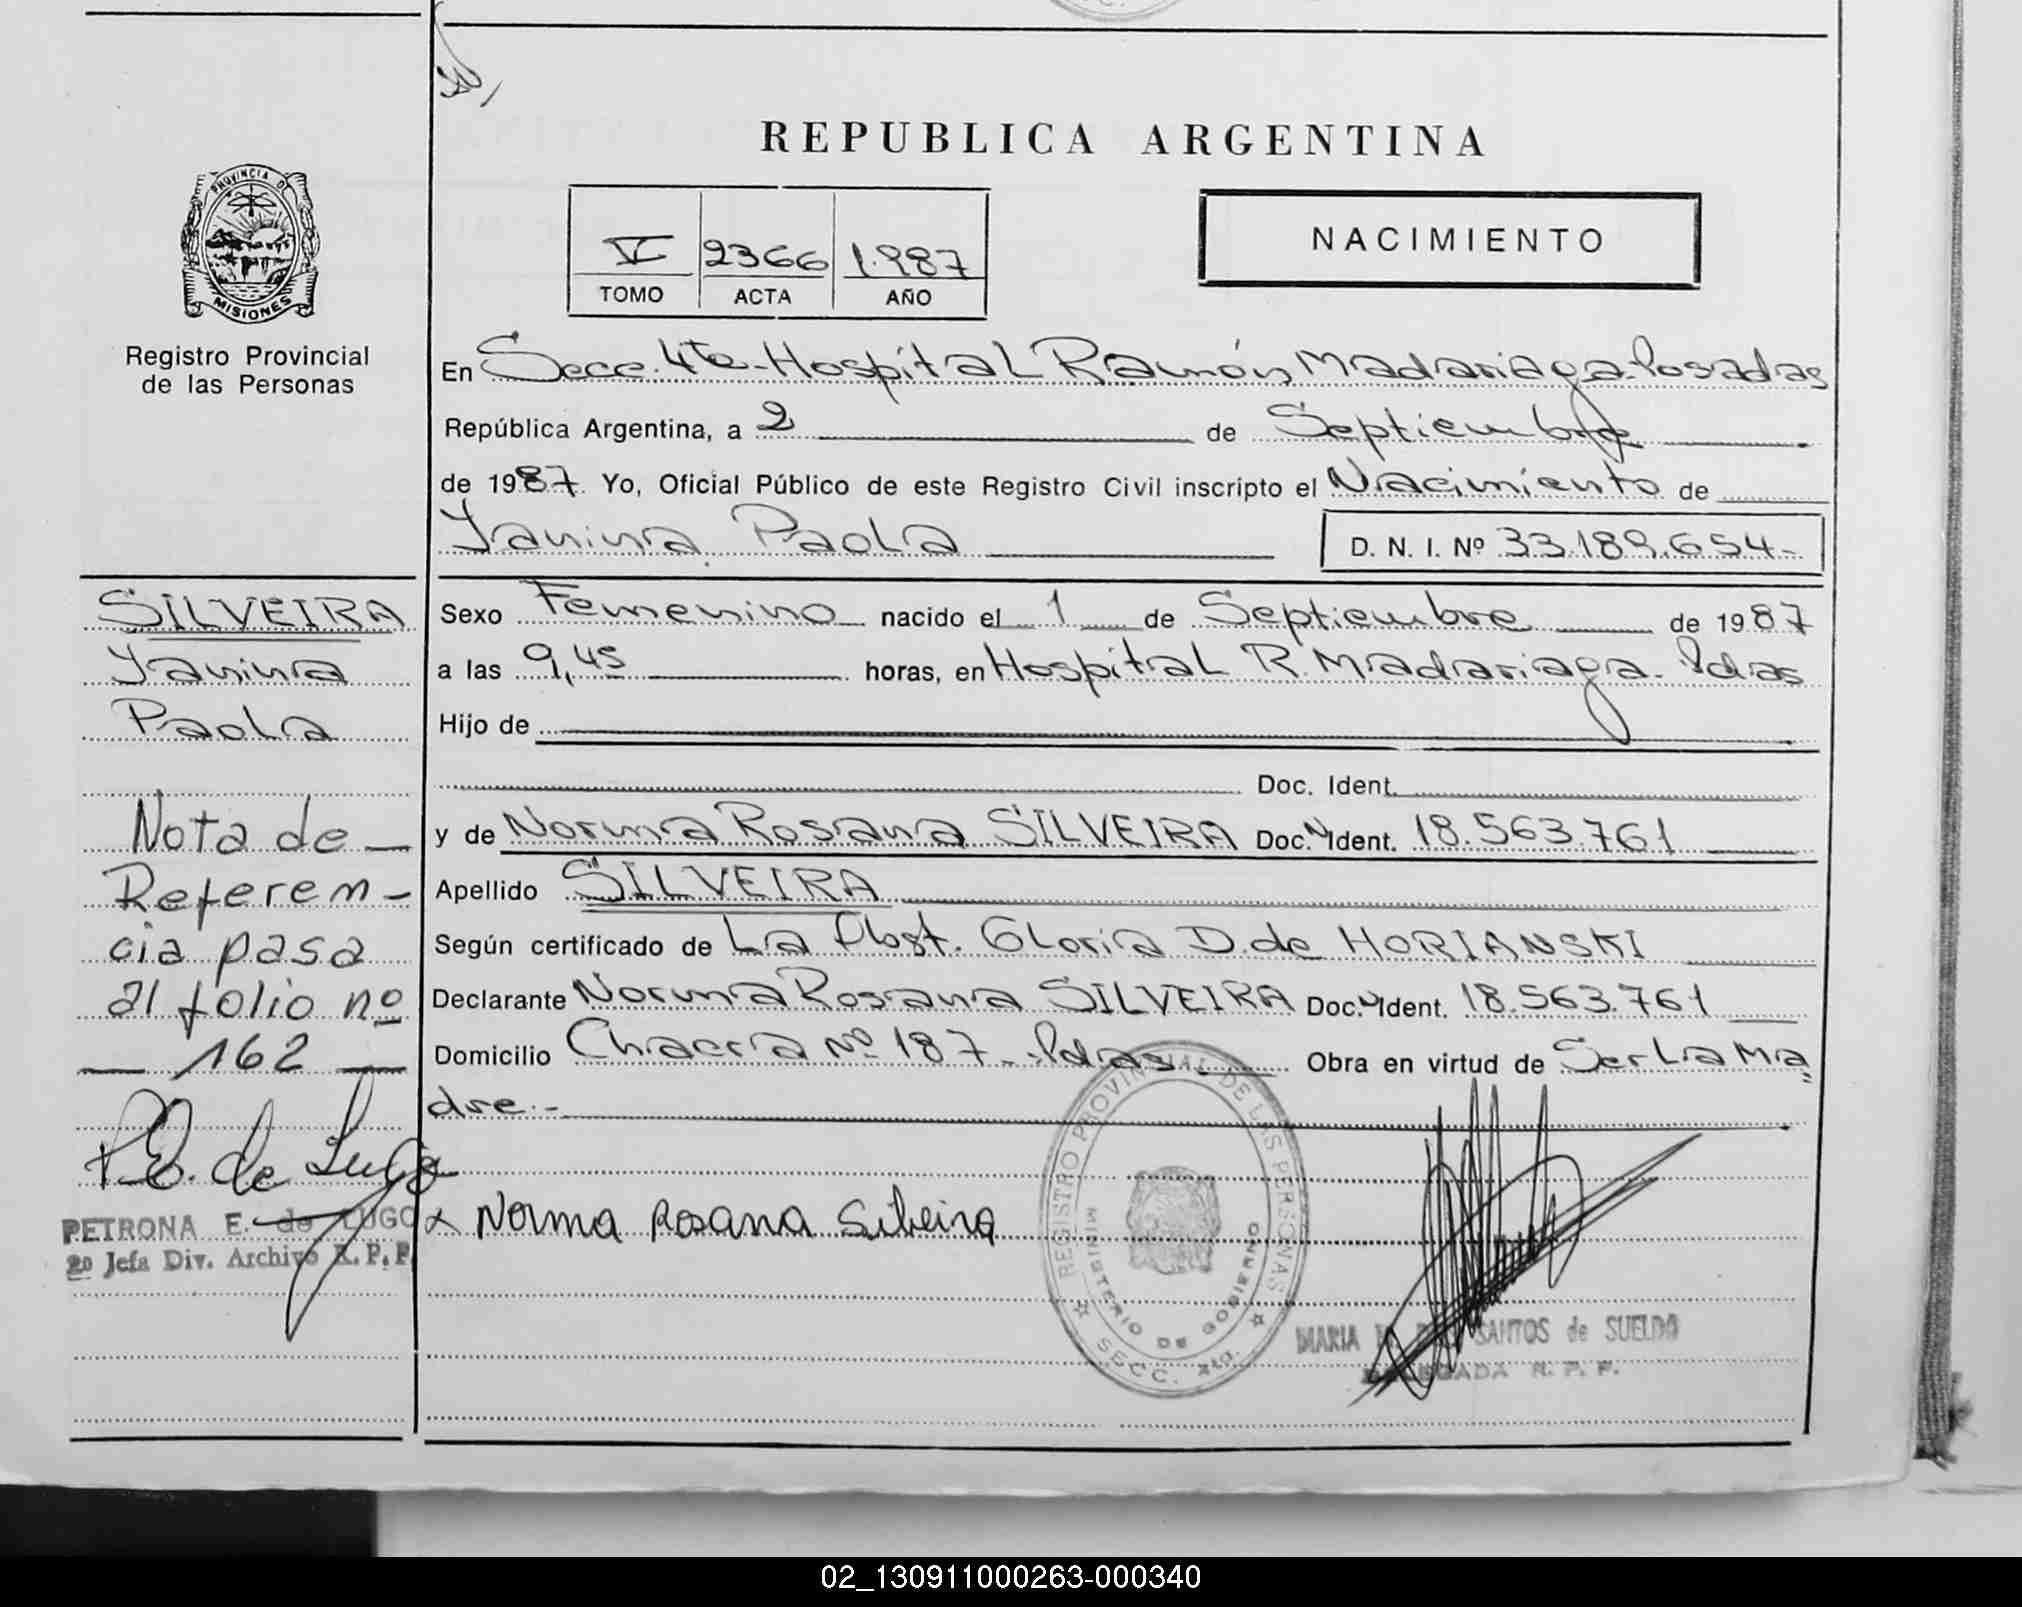 REPUBLICA ARGENTINA
PROVINCIA DE
MISIONES
Registro Provincial
de las Personas
V 2366 1.987
TOMO ACTA AÑO
NACIMIENTO
En Secc. 4ta - Hospital Ramón Madariaga - Posadas
República Argentina, a 2 de Septiembre
de 1987. Yo, Oficial Público de este Registro Civil inscripto el Nacimiento de
Yanina Paola D. N. I. Nº 33.189.654-
Sexo Femenino nacido el 1 de Septiembre de 1987
a las 9,45 horas, en Hospital R. Madariaga - Pdas
Hijo de
Doc. Ident.
y de Norma Rosana SILVEIRA Doc. N Ident. 18.563.761
Apellido SILVEIRA
Según certificado de La Obst. Gloria D. de HORIANSKI
Declarante Norma Rosana SILVEIRA Doc. N Ident. 18.563.761
Domicilio Chacra Nº 187 - Pdas Obra en virtud de Ser La Ma
dre.-
x Norma Rosana Silveira
REGISTRO PROVINCIAL DE LAS PERSONAS
MINISTERIO DE GOBIERNO
SECC. 4ta.
MARIA SANTOS de SUELDO
DELEGADA R. P. P.
SILVEIRA
Yanina
Paola
Nota de
Referen-
cia pasa
al folio nº
162
P.E. de Lugo
PETRONA E. de LUGO
2º Jefa Div. Archivo R. P. P.
02_130911000263-000340